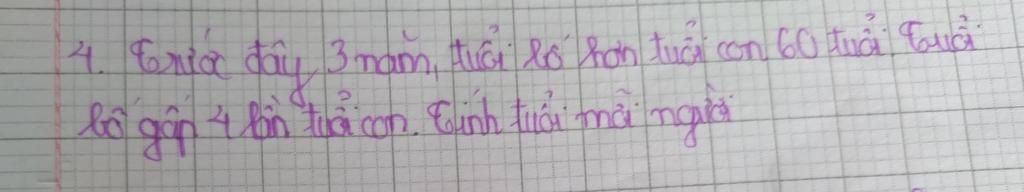 4. Trước đây 3 năm, tuổi bố hơn tuổi con 60 tuổi Tuổi
bố gấp 4 lần tuổi con. Tính tuổi mỗi người